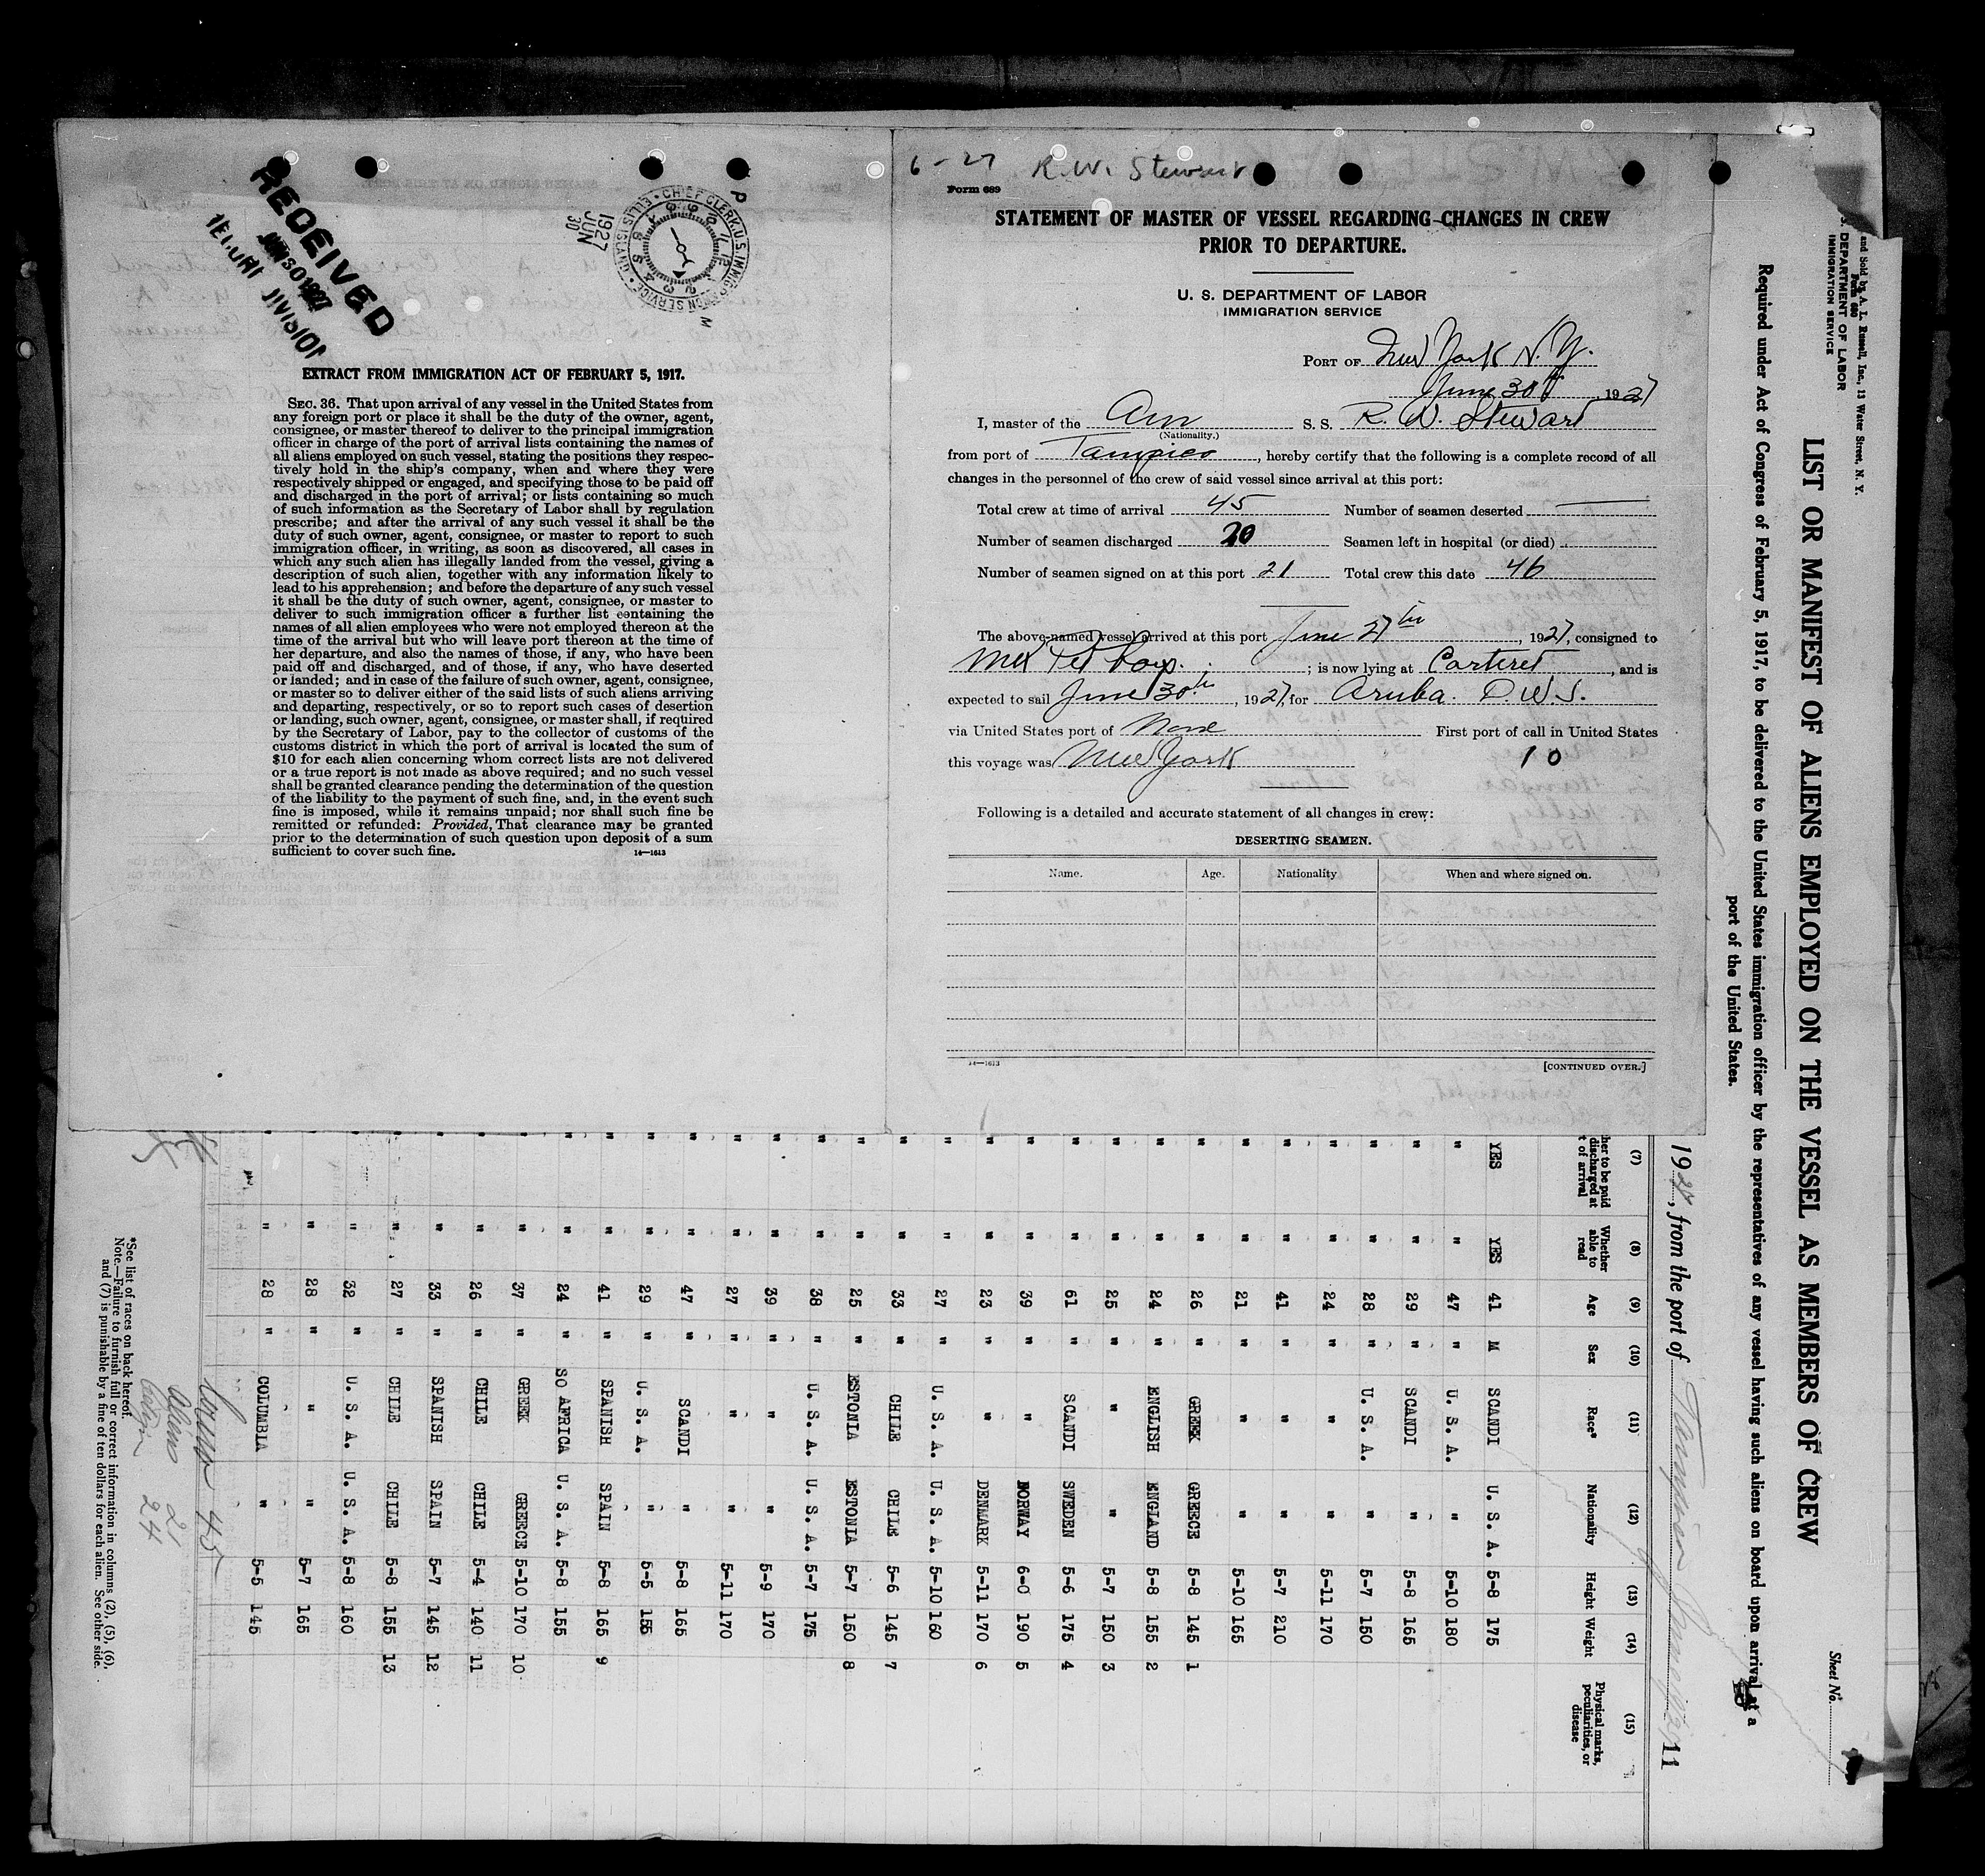 RECEIVED
JUN 30 1927
DIVISION
1927
JUN
30
P
M
CHIEF CLERK, U.S. IMMIGRATION SERVICE • ELLIS ISLAND
EXTRACT FROM IMMIGRATION ACT OF FEBRUARY 5, 1917.
SEC. 36. That upon arrival of any vessel in the United States from
any foreign port or place it shall be the duty of the owner, agent,
consignee, or master thereof to deliver to the principal immigration
officer in charge of the port of arrival lists containing the names of
all aliens employed on such vessel, stating the positions they respec-
tively hold in the ship's company, when and where they were
respectively shipped or engaged, and specifying those to be paid off
and discharged in the port of arrival; or lists containing so much
of such information as the Secretary of Labor shall by regulation
prescribe; and after the arrival of any such vessel it shall be the
duty of such owner, agent, consignee, or master to report to such
immigration officer, in writing, as soon as discovered, all cases in
which any such alien has illegally landed from the vessel, giving a
description of such alien, together with any information likely to
lead to his apprehension; and before the departure of any such vessel
it shall be the duty of such owner, agent, consignee, or master to
deliver to such immigration officer a further list containing the
names of all alien employees who were not employed thereon at the
time of the arrival but who will leave port thereon at the time of
her departure, and also the names of those, if any, who have been
paid off and discharged, and of those, if any, who have deserted
or landed; and in case of the failure of such owner, agent, consignee,
or master so to deliver either of the said lists of such aliens arriving
and departing, respectively, or so to report such cases of desertion
or landing, such owner, agent, consignee, or master shall, if required
by the Secretary of Labor, pay to the collector of customs of the
customs district in which the port of arrival is located the sum of
$10 for each alien concerning whom correct lists are not delivered
or a true report is not made as above required; and no such vessel
shall be granted clearance pending the determination of the question
of the liability to the payment of such fine, and, in the event such
fine is imposed, while it remains unpaid; nor shall such fine be
remitted or refunded: Provided, That clearance may be granted
prior to the determination of such question upon deposit of a sum
sufficient to cover such fine.
14—1613
6-27 R. W. Stewart
Form 689
STATEMENT OF MASTER OF VESSEL REGARDING CHANGES IN CREW
PRIOR TO DEPARTURE.
U. S. DEPARTMENT OF LABOR
IMMIGRATION SERVICE
PORT OF New York N.Y.
June 30th, 1927
I, master of the Am S. S. R. W. Stewart
(Nationality.)
from port of Tampico, hereby certify that the following is a complete record of all
changes in the personnel of the crew of said vessel since arrival at this port:
Total crew at time of arrival 45 Number of seamen deserted —
Number of seamen discharged 20 Seamen left in hospital (or died)
Number of seamen signed on at this port 21 Total crew this date 46
The above-named vessel arrived at this port June 27th, 1927, consigned to
Mex Pet Corp. ; is now lying at Carteret, and is
expected to sail June 30th, 1927, for Aruba. D.W.I.
via United States port of None First port of call in United States
this voyage was New York 10
Following is a detailed and accurate statement of all changes in crew:
DESERTING SEAMEN.
Name. Age. Nationality When and where signed on.
14—1613 [CONTINUED OVER.]
and Sold by A. L. Russell, Inc., 13 Water Street, N. Y.
Form 680
DEPARTMENT OF LABOR
IMMIGRATION SERVICE
Sheet No.
LIST OR MANIFEST OF ALIENS EMPLOYED ON THE VESSEL AS MEMBERS OF CREW
Required under Act of Congress of February 5, 1917, to be delivered to the United States immigration officer by the representatives of any vessel having such aliens on board upon arrival at a
port of the United States.
1927, from the port of Tampico 11
(7) (8) (9) (10) (11) (12) (13) (14) (15)
her to be paid discharged at t of arrival Whether able to read Age Sex Race* Nationality Height Weight Physical marks, peculiarities, or disease
YES YES 41 M SCANDI U. S. A. 5-8 175
" " 47 " U. S. A. " 5-10 180
" " 29 " SCANDI " 5-8 165
" " 28 " U. S. A. " 5-7 150
" " 24 " " " 5-11 170
" " 41 " " " 5-7 210
" " 21 " " " 5-10 165
" " 26 " GREEK GREECE 5-8 145 1
" " 24 " ENGLISH ENGLAND 5-8 155 2
" " 25 " " " 5-7 150 3
" " 61 " SCANDI SWEDEN 5-6 175 4
" " 39 " " NORWAY 6-0 190 5
" " 23 " " DENMARK 5-11 170 6
" " 27 " U. S. A. U. S. A. 5-10 160
" " 33 " CHILE CHILE 5-6 145 7
" " 25 " ESTONIA ESTONIA 5-7 150 8
" " 38 " U. S. A. U. S. A. 5-7 175
" " 39 " " " 5-9 170
" " 27 " " " 5-11 170
" " 47 " SCANDI " 5-8 165
" " 29 " U. S. A. " 5-5 155
" " 41 " SPANISH SPAIN 5-8 165 9
" " 24 " SO AFRICA U. S. A. 5-8 155
" " 37 " GREEK GREECE 5-10 170 10
" " 26 " CHILE CHILE 5-4 140 11
" " 33 " SPANISH SPAIN 5-7 145 12
" " 27 " CHILE CHILE 5-8 155 13
" " 32 " U. S. A. U. S. A. 5-8 160
" " 28 " " " 5-7 165
" " 28 " COLUMBIA " 5-5 145
45
Aliens 21
24
*See list of races on back hereof.
Note.—Failure to furnish full or correct information in columns (2), (5), (6),
and (7) is punishable by a fine of ten dollars for each alien. See other side.